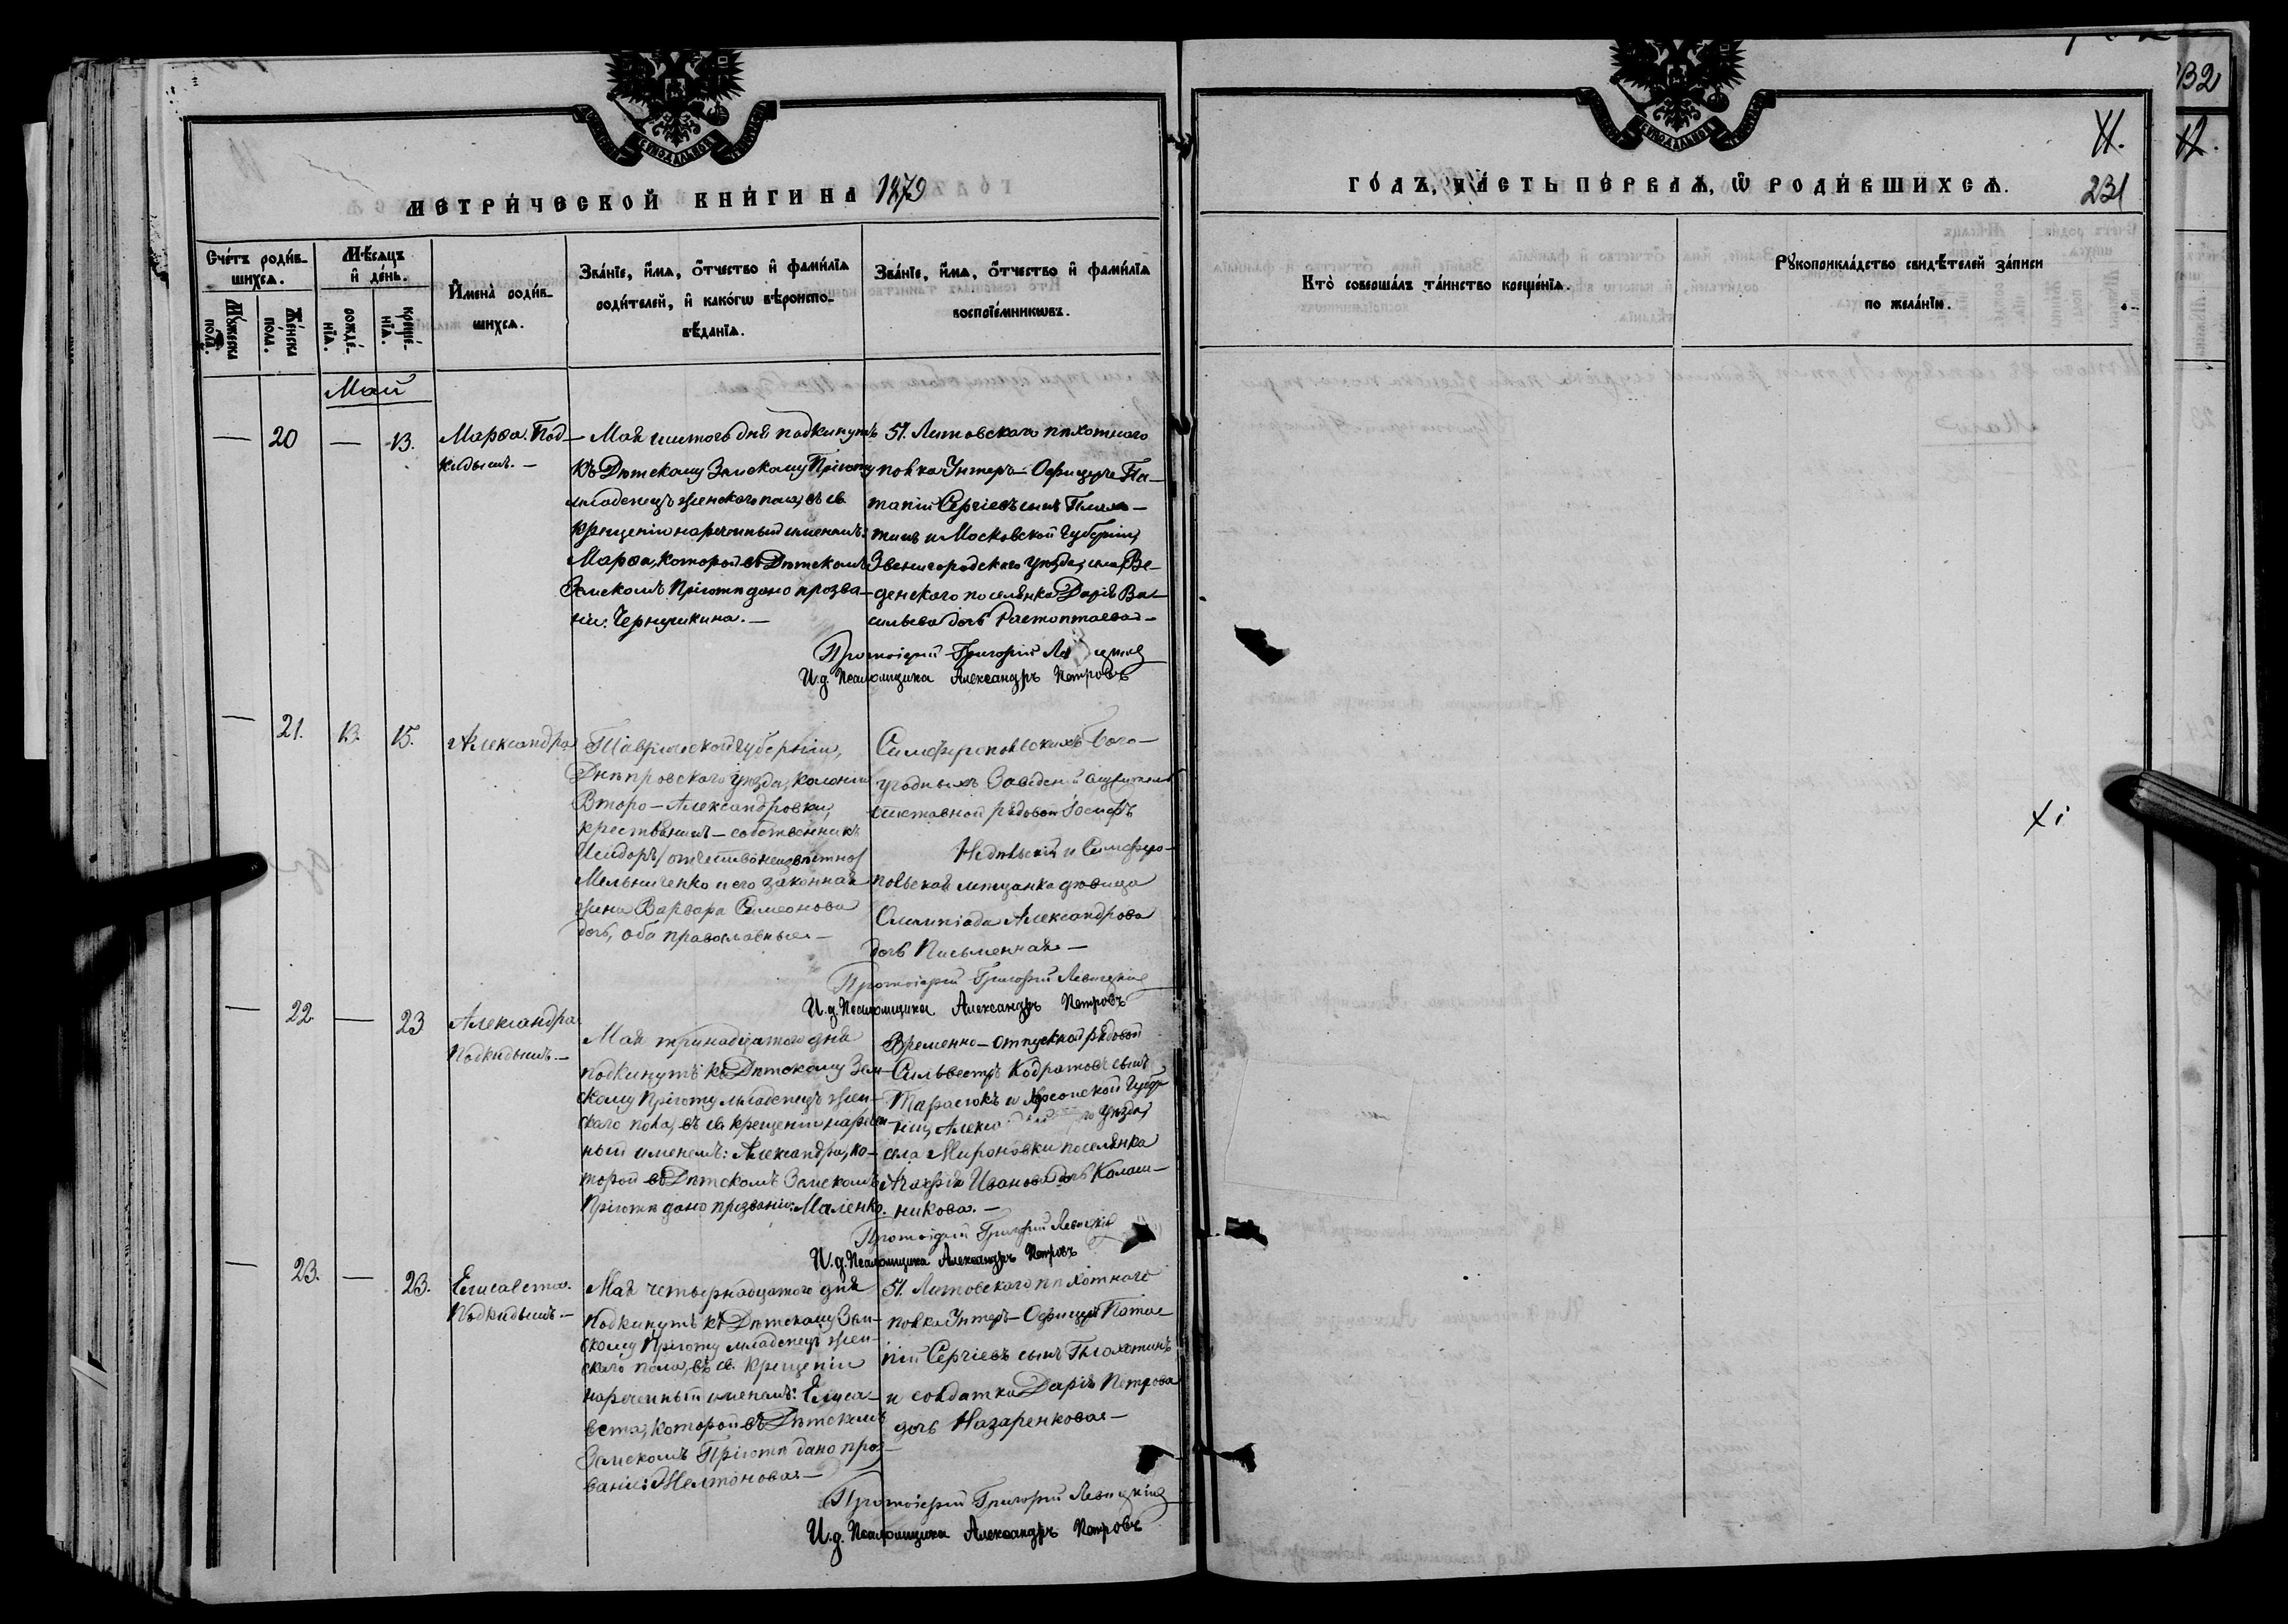 МЕТРИ́ЧЕСКОЙ КНИ́ГИ НА 1879
ГО́ДЪ, ЧА́СТЬ ПЕ́РВАѦ, Ѿ РОДИ́ВШИХСѦ.
XI.
231
132
Сче́тъ роди́в-
шихсѧ.
Мꙋ́жеска
по́ла.
Же́нска
по́ла.
Мѣ́сѧцъ
и҆ де́нь.
рожде́-
нїѧ.
креще́-
нїѧ.
И҆мена̀ роди́в-
шихсѧ.
Зва́нїе, и҆́мѧ, ѻ҆́тчество и҆ фами́лїѧ
роди́телей, и҆ како́гѡ вѣроиспо-
вѣ́данїѧ.
Зва́нїе, и҆́мѧ, ѻ҆́тчество и҆ фами́лїѧ
воспрїе́мникѡвъ.
Кто̀ соверша́лъ та́инство креще́нїѧ.
Рꙋкоприкла́дство свидѣ́телей за́писи
по жела́нїю.
Май
— 20 — 13.
Марѳа. Под-
кидышъ. —
Мая шестого дня подкинутъ
къ Дѣтскому Земскому Пріюту
младенецъ женскаго пола, въ св.
крещеніи нареченный именемъ:
Марѳа, которой въ Дѣтскомъ
Земскомъ Пріютѣ дано прозва-
ніе: Чернушкина. —
51. Литовскаго пѣхотнаго
полка Унтеръ-Офицеръ По-
тапій Сергіевъ сынъ
и Московской Губерніи,
Звенигородскаго уѣзда, села Вве-
денскаго поселянка Дарія Ва-
сильева дочь Растоптаева. —
Протоіерей Григорій
И.д. Псаломщика Александръ Петровъ
— 21. 13. 15.
Александра
Таврической губерніи,
Днѣпровскаго уѣзда, колоніи
Второ-Александровки,
крестьянинъ-собственникъ
Исидоръ /отчество неизвѣстно/
Мельниченко и его законная
жена Варвара Симеонова
дочь, оба православные. —
Симферопольскихъ Бого-
угодныхъ Заведеній служитель
отставной рядовой Іосифъ
Недѣльскій и Симферо-
польская мѣщанка дѣвица
Олимпіада Александрова
дочь Письменная. —
Протоіерей Григорій Левицкій
И.д. Псаломщика Александръ Петровъ
— 22. — 23
Александра
Подкидышъ. —
Мая тринадцатого дня
подкинутъ къ Дѣтскому Зем-
скому Пріюту младенецъ жен-
скаго пола, въ св. крещеніи наречен-
ный именемъ: Александра, ко-
торой въ Дѣтскомъ Земскомъ
Пріютѣ дано прозваніе: Маленко.
Временно-отпускной рядовой
Сильвестръ Кодратовъ сынъ
Тарасюкъ и Херсонской Губер-
ніи, уѣзда,
села Мироновки поселянка
Агафія Иванова дочь Калаш-
никова. —
Протоіерей Григорій Левицкій
И.д. Псаломщика Александръ Петровъ
— 23. — 23.
Елисавета.
Подкидышъ. —
Мая четырнадцатого дня
подкинутъ къ Дѣтскому Зем-
скому Пріюту младенецъ жен-
скаго пола, въ св. крещеніи
нареченный именемъ: Елиса-
вета, которой въ Дѣтскомъ
Земскомъ Пріютѣ дано проз-
ваніе: Желтонова. —
51. Литовскаго пѣхотнаго
полка Унтеръ-Офицеръ Пота-
пій Сергіевъ сынъ Плохотинъ
и солдатка Дарія Петрова
дочь Назаренкова. —
Протоіерей Григорій Левицкій
И.д. Псаломщика Александръ Петровъ